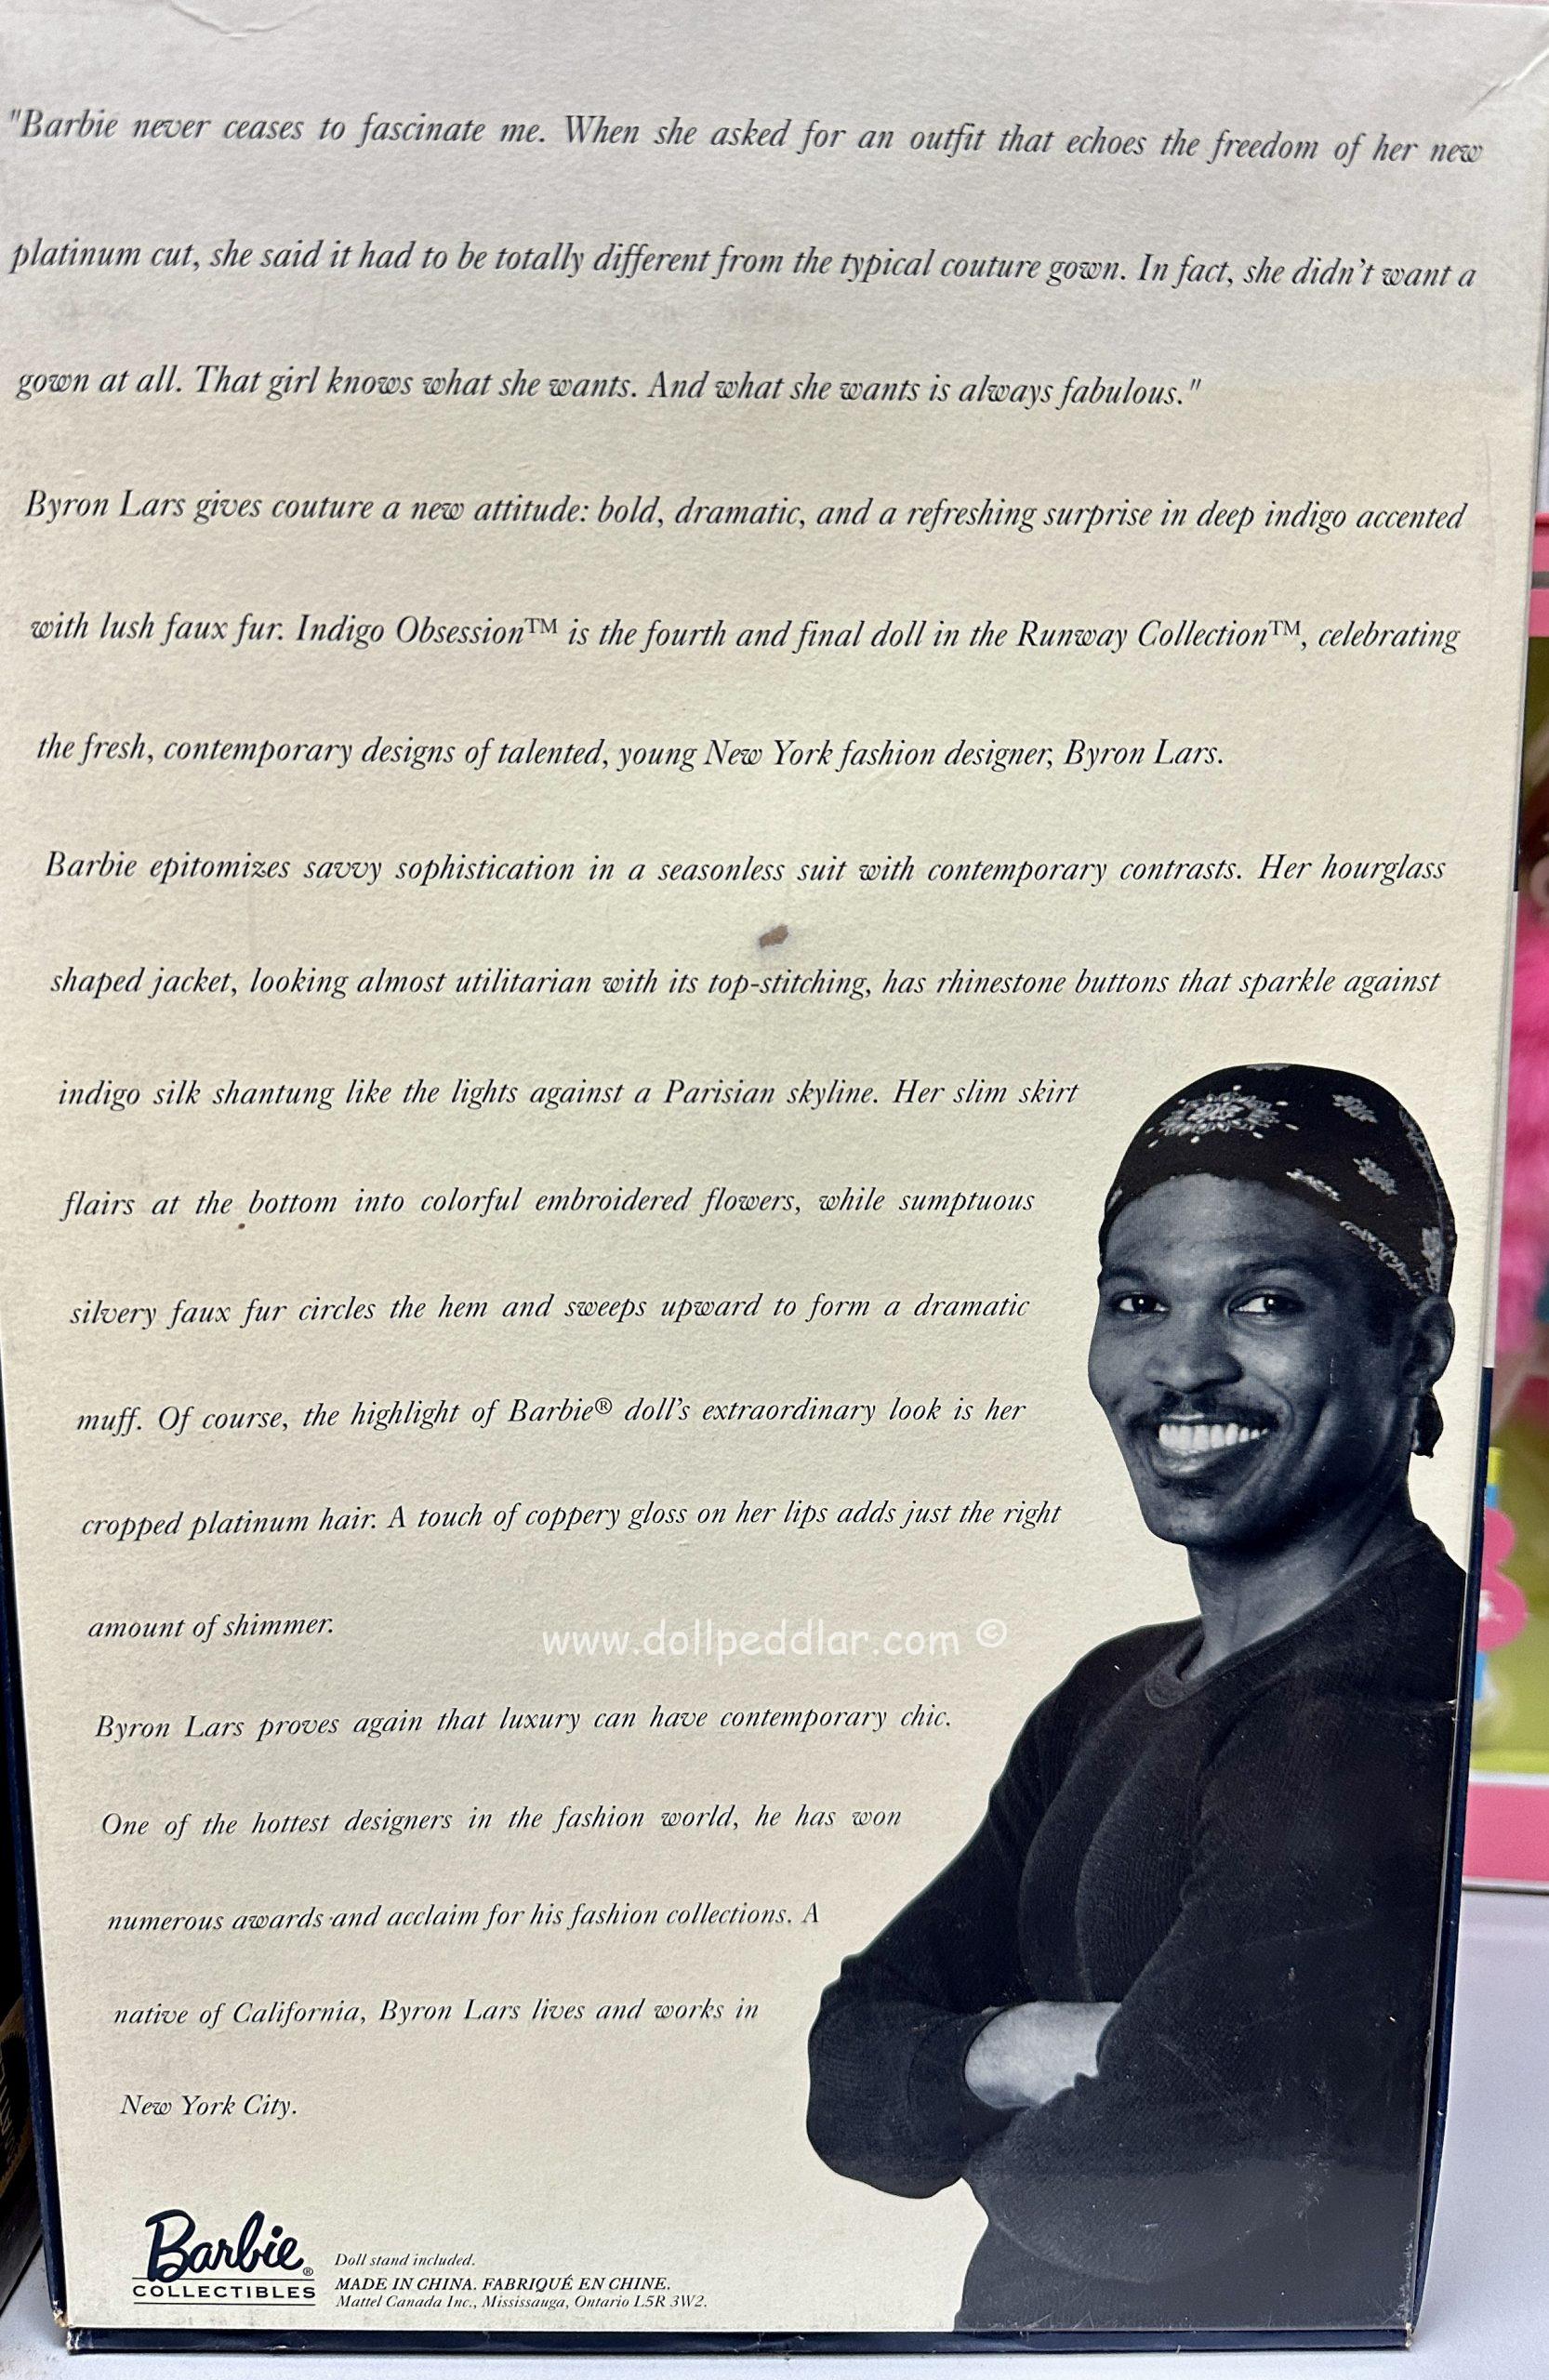 "Barbie never ceases to fascinate me. When she asked for an outfit that echoes the freedom of her new
platinum cut, she said it had to be totally different from the typical couture gown. In fact, she didn't want a
gown at all. That girl knows what she wants. And what she wants is always fabulous."
Byron Lars gives couture a new attitude: bold, dramatic, and a refreshing surprise in deep indigo accented
with lush faux fur. Indigo Obsession™ is the fourth and final doll in the Runway Collection™, celebrating
the fresh, contemporary designs of talented, young New York fashion designer, Byron Lars.
Barbie epitomizes savvy sophistication in a seasonless suit with contemporary contrasts. Her hourglass
shaped jacket, looking almost utilitarian with its top-stitching, has rhinestone buttons that sparkle against
indigo silk shantung like the lights against a Parisian skyline. Her slim skirt
flairs at the bottom into colorful embroidered flowers, while sumptuous
silvery faux fur circles the hem and sweeps upward to form a dramatic
muff. Of course, the highlight of Barbie® doll's extraordinary look is her
cropped platinum hair. A touch of coppery gloss on her lips adds just the right
amount of shimmer.
www.dollpeddlar.com ©
Byron Lars proves again that luxury can have contemporary chic.
One of the hottest designers in the fashion world, he has won
numerous awards and acclaim for his fashion collections. A
native of California, Byron Lars lives and works in
New York City.
Barbie®
COLLECTIBLES
Doll stand included.
MADE IN CHINA. FABRIQUÉ EN CHINE.
Mattel Canada Inc., Mississauga, Ontario L5R 3W2.